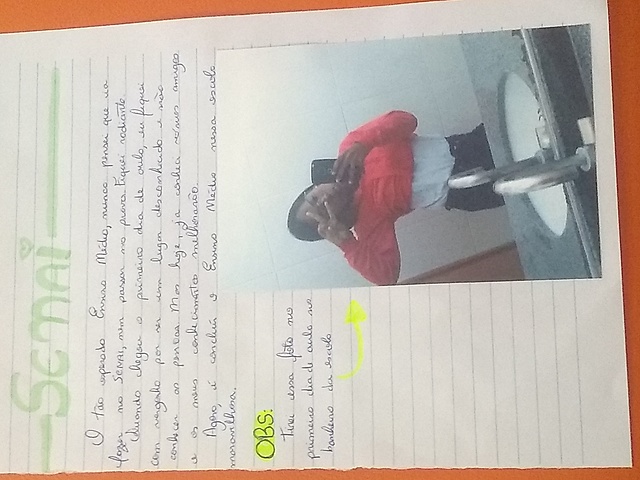 SEMAI
O tão esperado Ensino Médio, nunca pensei que ia
fazer no SEMAI, nem passar na prova fiquei radiante.
Quando chegou o primeiro dia de aula, eu fiquei
com vergonha por ser um lugar desconhecido e não
conhecer as pessoas. Mas hoje, já conheço vários amigos
e os meus conhecimentos melhorando.
Agora, é concluir o Ensino Médio nessa escola
maravilhosa.
OBS:
Tirei essa foto no
primeiro dia de aula no
banheiro da escola